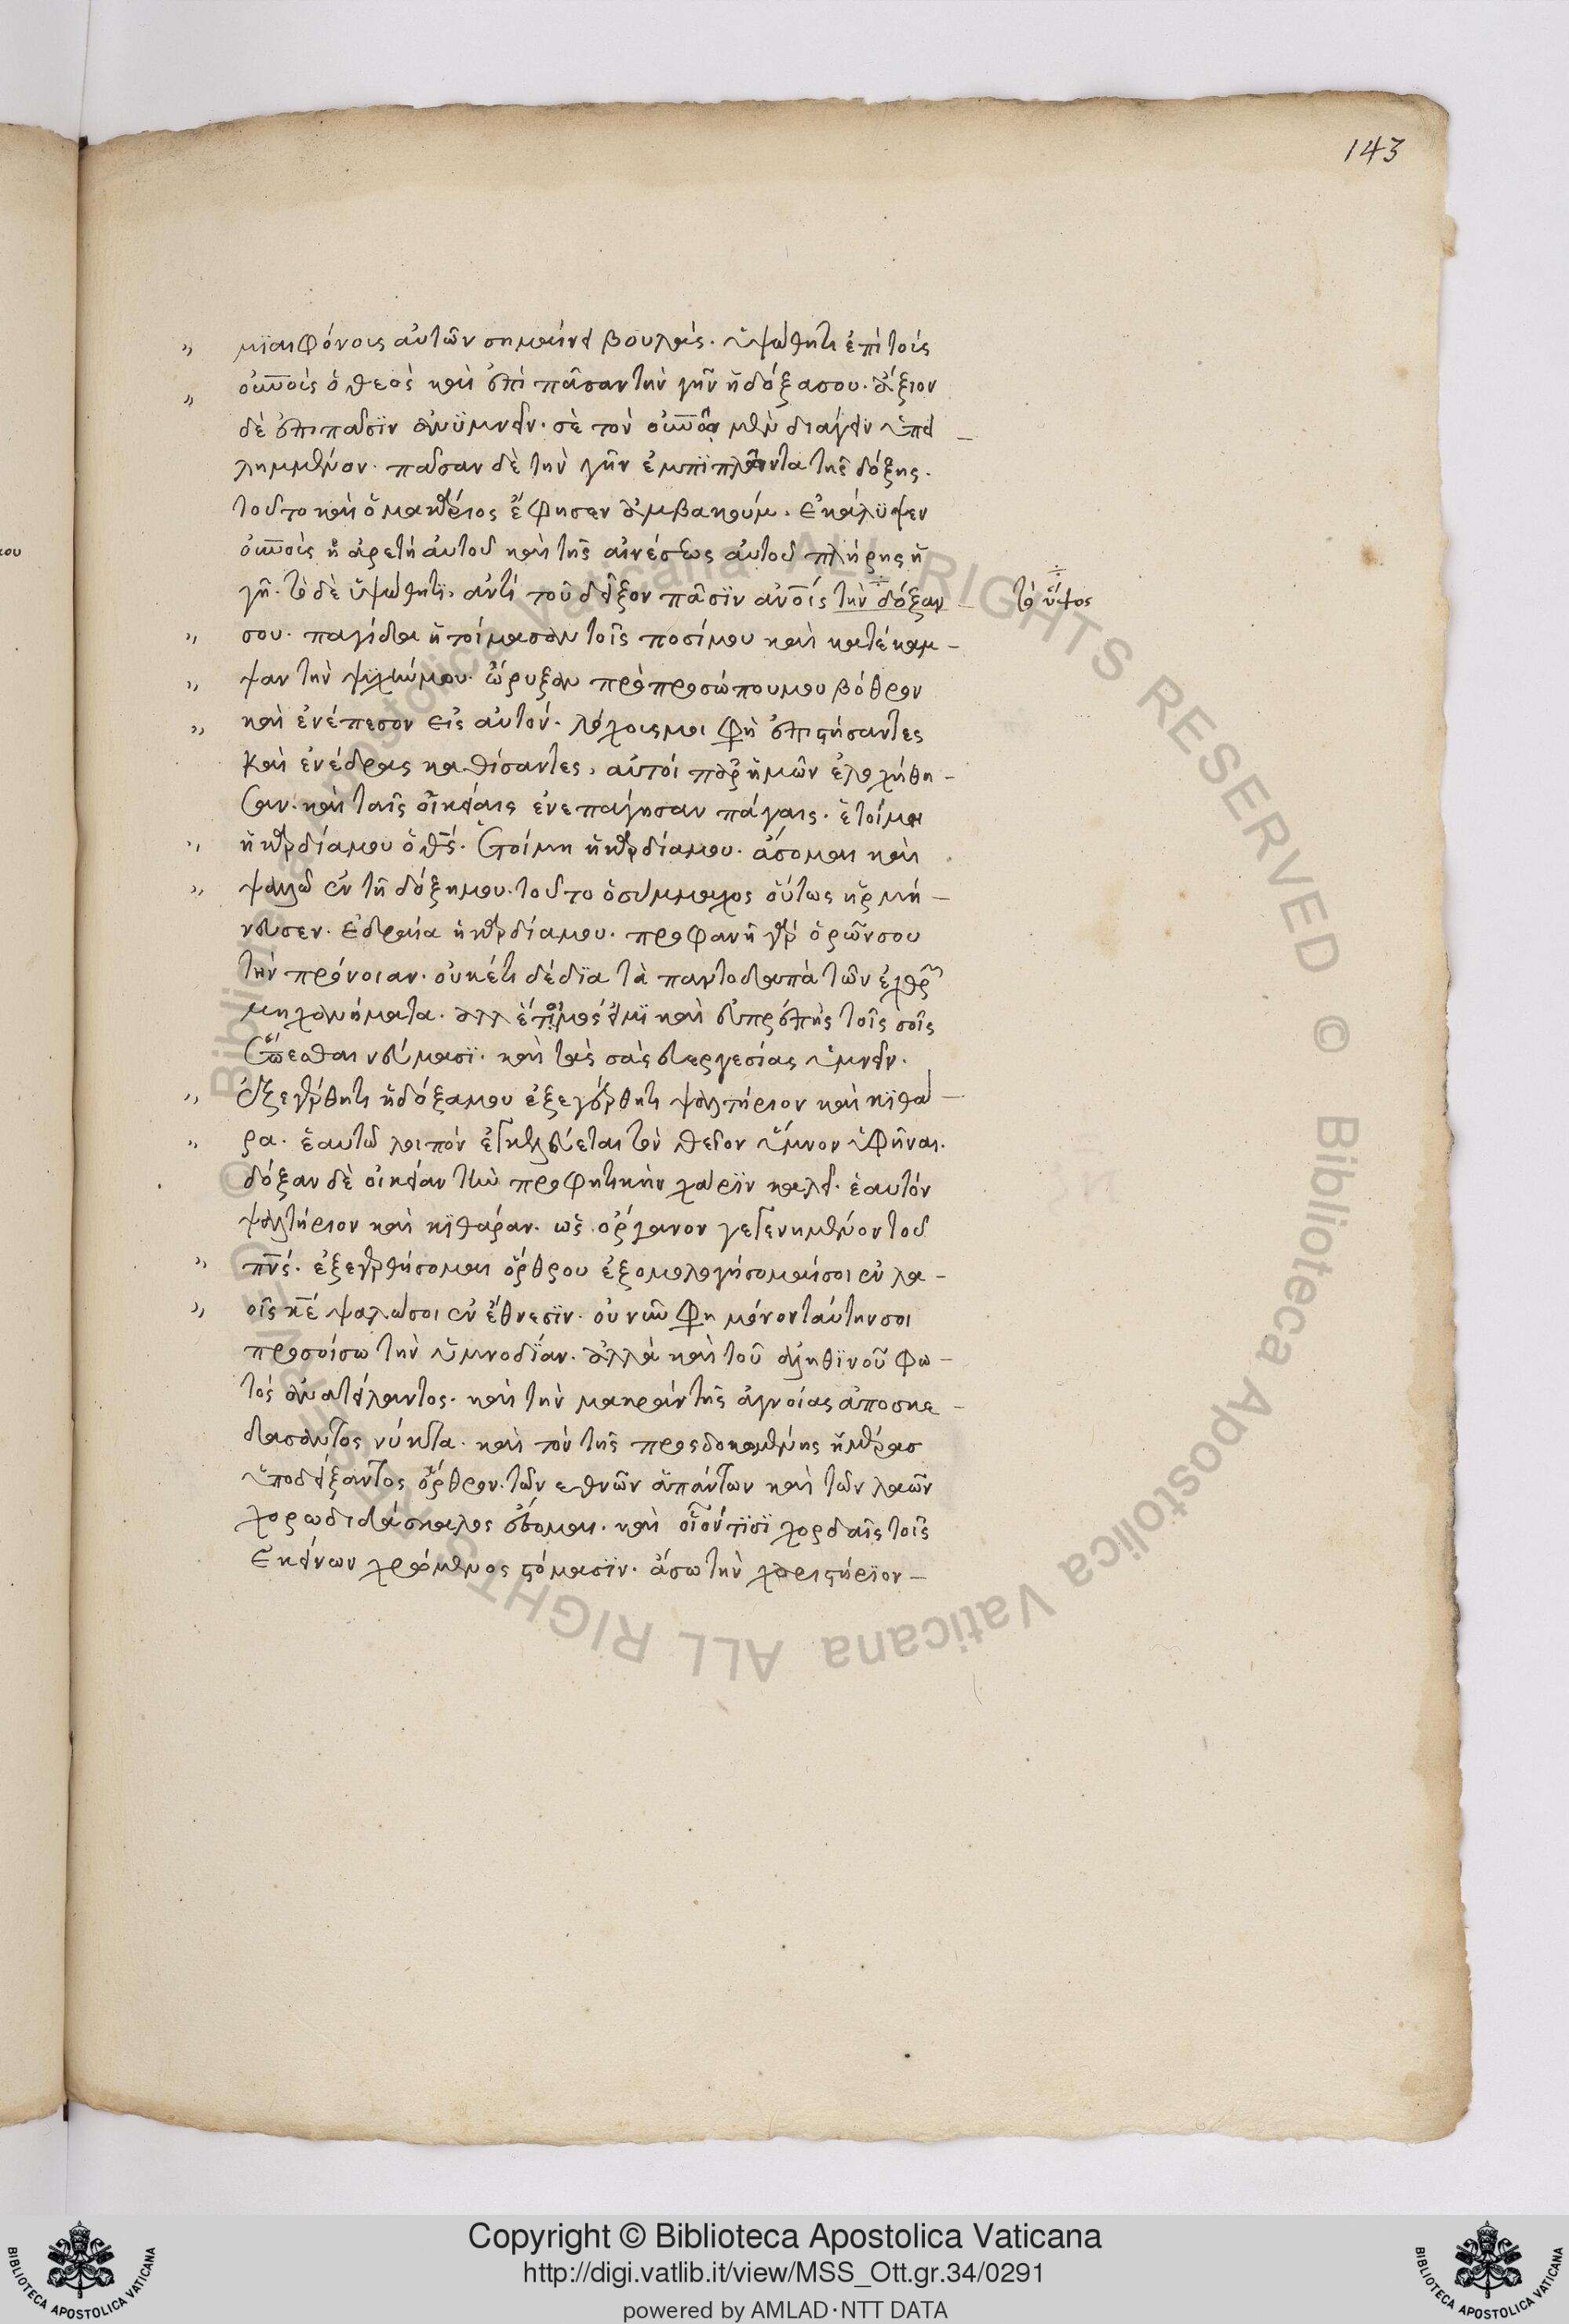 143
μϊαιφόνοις αὐτῶν σημαίνει βουλάς. ὑψώθητι ἐπὶ τοὺς
οὐνοὺς ὁ θεὸς καὶ ἐπὶ πᾶσαν τὴν γῆν ἡ δόξα σου. ἄξιον
δὲ ἐπὶ πᾶσϊν ἀνϋμνεῖν. σὲ τὸν μὲν διάγειν ὑπει
λημμένον. πᾶσαν δὲ τὴν γῆν ἐμπϊπλῶντα τῆς δόξης.
τοῦτο καὶ ὁ μακάριος ἔφησεν ἀμβακούμ. ἐκάλϋψεν
οὐνοὺς ἡ ἀρετὴ αὐτοῦ καὶ τῆς αἰνέσεως αὐτοῦ πλήρης ἡ
γῆ. τὸ δὲ ὑψώθητϊ. ἀντὶ τοῦ δεῖξον πᾶσϊν ἀνοις τὴν δόξαν
τὸ ὕψος
σου. παγίδα ἡτοίμασαν τοῖς ποσί μου καὶ κατέκαμ-
ψαν τὴν ψυχήν μου. ὤρυξαν πρὸ προσώπου μου βόθρον
καὶ ἐνέπεσον εἰς αὐτόν. λόχοις μοι φη ἐπιστήσαντες
καὶ ἐνέδρας καθίσαντες, αὐτοὶ παρ ἡμῶν ἐλοχήθη-
σαν. καὶ ταῖς οἰκείαις ἐνεπάγησαν πάγαις. ἑτοίμη
ἡ καρδία μου ὁ θς. ἑτοίμη ἡ καρδία μου. ἄσομαι καὶ
ψαλῶ ἐν τῇ δόξη μου. τοῦτο ὁ σύμμαχος οὕτως ἡρμή-
νευσεν. ἑδραία ἡ καρδία μου. προφανῆ γὰρ ὁρῶν σου
τὴν πρόνοιαν. οὐκέτι δέδϊα τὰ παντοδαπὰ τῶν ἐχθρῶν
μηχανήματα. ἀλλ ἕτοιμός εἰμϊ καὶ εὐπρεπὴς τοῖς σοῖς
ἕπεσθαι νεύμασϊ. καὶ τὰς σὰς εὐεργεσίας ὑμνεῖν.
ἐξεγέρθητι ἡ δόξα μου ἐξεγέρθητι ψαλτήριον καὶ κϊθά-
ρα. ἑαυτῶ λοιπὸν ἐγκελεύεται τὸν θεῖον ὕμνον ὑφῆναι.
δόξαν δὲ οἰκείαν τὴν προφητικὴν χάρϊν καλεῖ. ἑαυτὸν
ψαλτήριον καὶ κϊθάραν. ὡς ὄργανον γεγενημένον τοῦ
πνς. ἐξεγερθήσομαι ὄρθρου ἐξομολογήσομαί σοι ἐν λα-
οῖς κε ψαλῶ σοι ἐν ἔθνεσϊν. οὐ νῦν φη μόνον ταύτην σοι
προσοίσω τὴν ὑμνωδίαν. ἀλλὰ καὶ τοῦ ἀληθϊνοῦ φω-
τὸς ἀνατείλαντος. καὶ τὴν μακρὰν τῆς ἀγνοίας ἀποσκε-
δάσαντος νύκτα. καὶ τὸν τῆς προσδοκωμένης ἡμέρας
ὑποδείξαντος ὄρθρον. τῶν ἐθνῶν ἁπάντων καὶ τῶν λαῶν
χορωδιδάσκαλος ἔσομαι. καὶ οἷόν τϊσϊ χορδαῖς τοῖς
ἐκείνων χρώμενος στόμασϊν. ἄσω τὴν χαριστήριον-
Copyright © Biblioteca Apostolica Vaticana
http://digi.vatlib.it/view/MSS_Ott.gr.34/0291
powered by AMLAD·NTT DATA